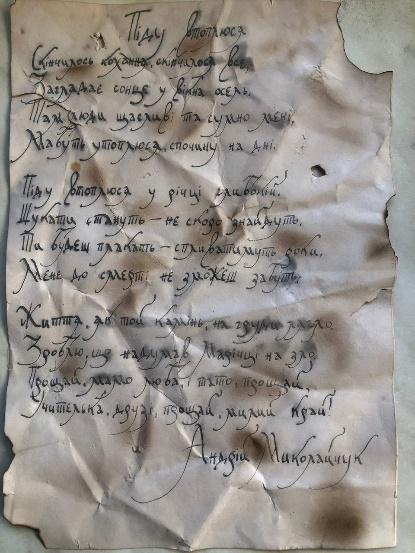 Піду втоплюся
Скінчилось кохання, скінчалося все,
Заглядає сонце у вікна осель.
Там люди щасливі та сумно мені,
Мабуть утоплюся, спочину на дні.
Піду втоплюся у річці глибокій.
Шукати стануть – не скоро знайдуть.
Ти будеш плакать – спливатимуть роки,
Мене до смерті не зможеш забуть.
Життя, як той камінь, на груди лягло.
Зроблю, що надумав Марічці на зло.
Прощай, мамо люба, і тато, прощай,
Учителька, друзі, прощай, милий край!
Андрій Миколайчук